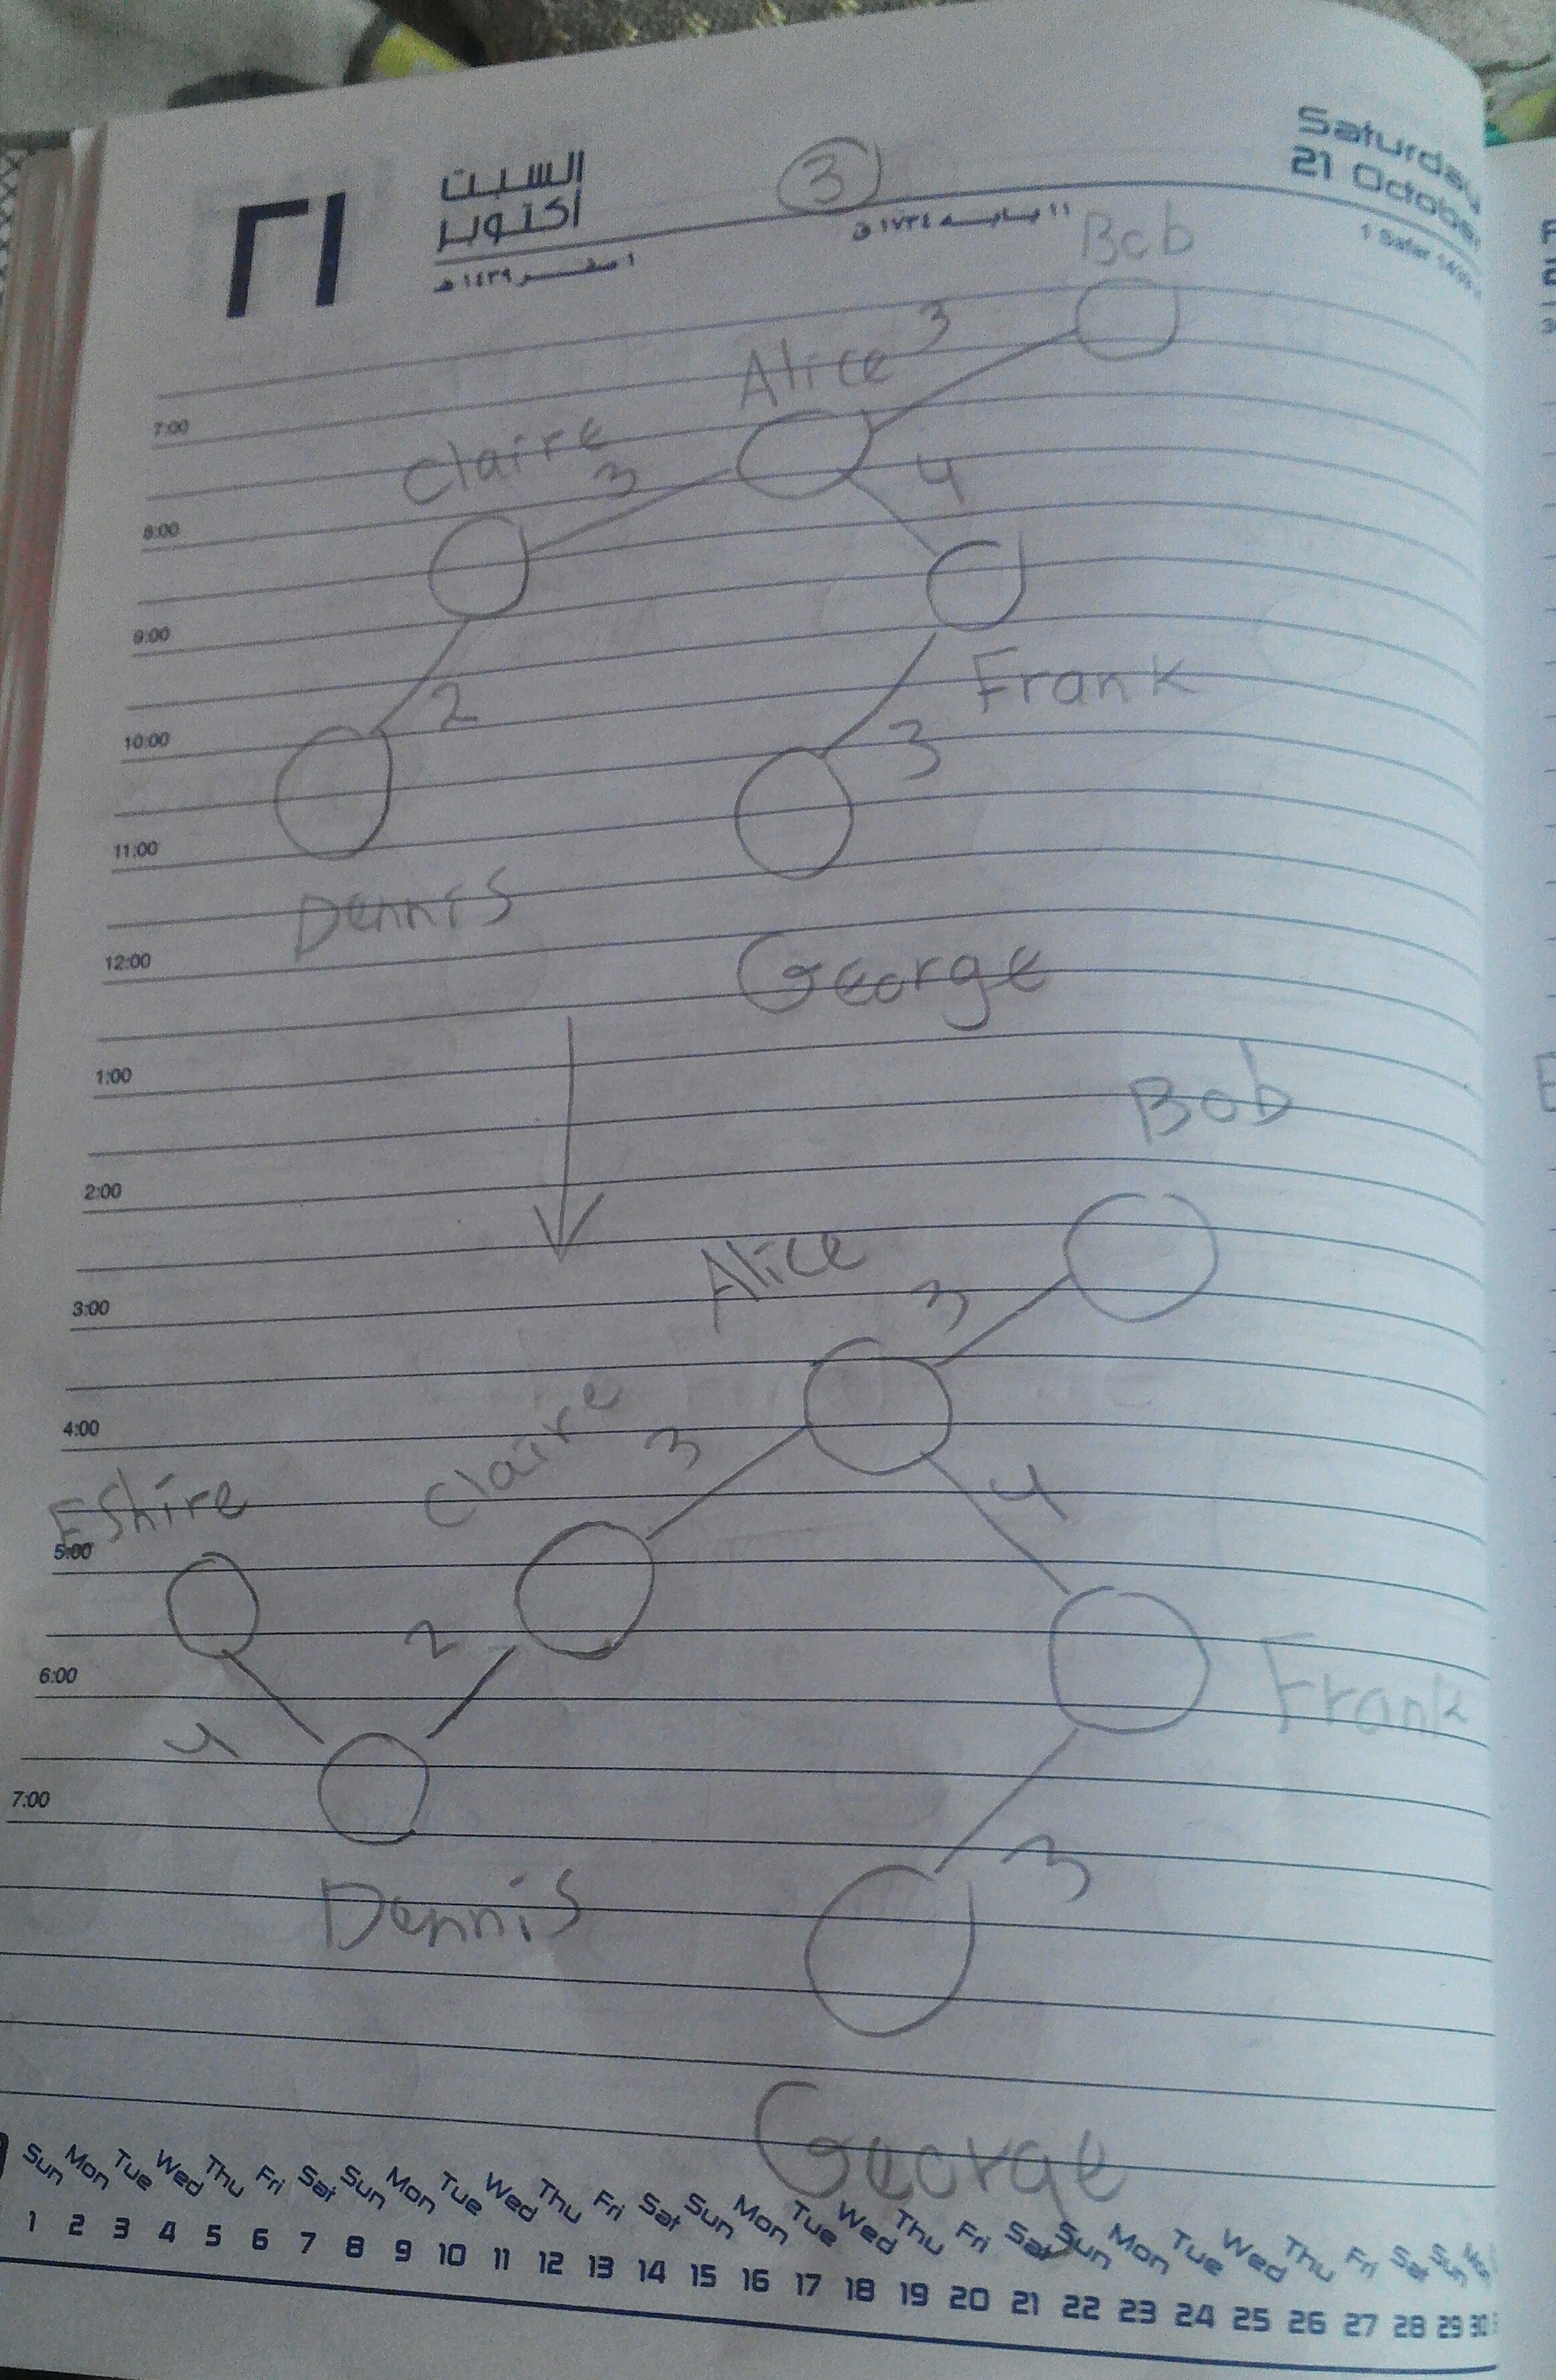 ٢١
السبت
أكتوبر
١ صفر ١٤٣٩ هـ
3
Saturday
21 October
7:00
8:00
9:00
10:00
11:00
12:00
1:00
2:00
3:00
4:00
5:00
6:00
7:00
Bob
Alice 3
Claire 3
4
Frank
2
3
Dennis
George
Bob
Alice 3
Claire 3
4
Eshire
2
Frank
4
3
Dennis
George
Sun Mon Tue Wed Thu Fri Sat Sun Mon Tue Wed Thu Fri Sat Sun Mon Tue Wed Thu Fri Sat Sun Mon Tue Wed Thu Fri Sat Sun
1 2 3 4 5 6 7 8 9 10 11 12 13 14 15 16 17 18 19 20 21 22 23 24 25 26 27 28 29 30